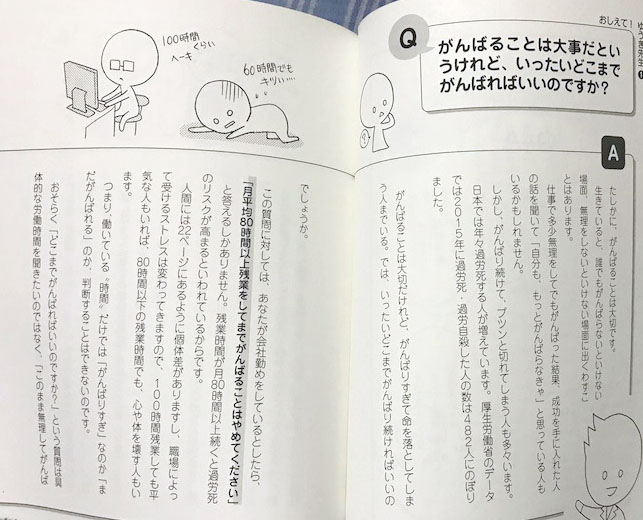 おしえて！ゆうき先生
Q
がんばることは大事だとい
うけれど、いったいどこまで
がんばればいいのですか？
A
たしかに、がんばることは大切です。
生きていると、誰でもがんばらないといけない
場面、無理をしないといけない場面に出くわすこ
とはあります。
仕事で多少無理をしてでもがんばった結果、成功を手に入れた人
の話を聞いて「自分も、もっとがんばらなきゃ」と思っている人も
いるかもしれません。
しかし、がんばり続けて、プツンと切れてしまう人も多くいます。
日本では年々過労死する人が増えています。厚生労働省のデータ
では2015年に過労死・過労自殺した人の数は482人にのぼり
ました。
がんばることは大切だけれど、がんばりすぎて命を落としてしま
う人までいる。では、いったいどこまでがんばり続ければいいの
100時間
くらい
ヘーキ
60時間でも
キツい…
でしょうか。
この質問に対しては、あなたが会社勤めをしているとしたら、
「月平均80時間以上残業をしてまでがんばることはやめてください」
と答えるしかありません。残業時間が月80時間以上続くと過労死
のリスクが高まるといわれているからです。
人間には22ページにあるように個体差がありますし、職場によっ
て受けるストレスは変わってきますので、100時間残業しても平
気な人もいれば、80時間以下の残業時間でも、心や体を壊す人もい
ます。
つまり、働いている“時間”だけでは「がんばりすぎ」なのか「ま
だがんばれる」のか、判断することはできないのです。
おそらく「どこまでがんばればいいのですか？」という質問は具
体的な労働時間を聞きたいのではなく、「このまま無理してがんば